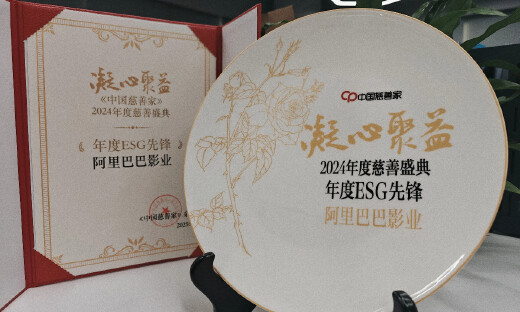 凝心聚益
《中国慈善家》
2024年度慈善盛典
年度ESG先锋
阿里巴巴影业
《中国慈善家》
CP中国慈善家
凝心聚益
2024年度慈善盛典
年度ESG先锋
阿里巴巴影业